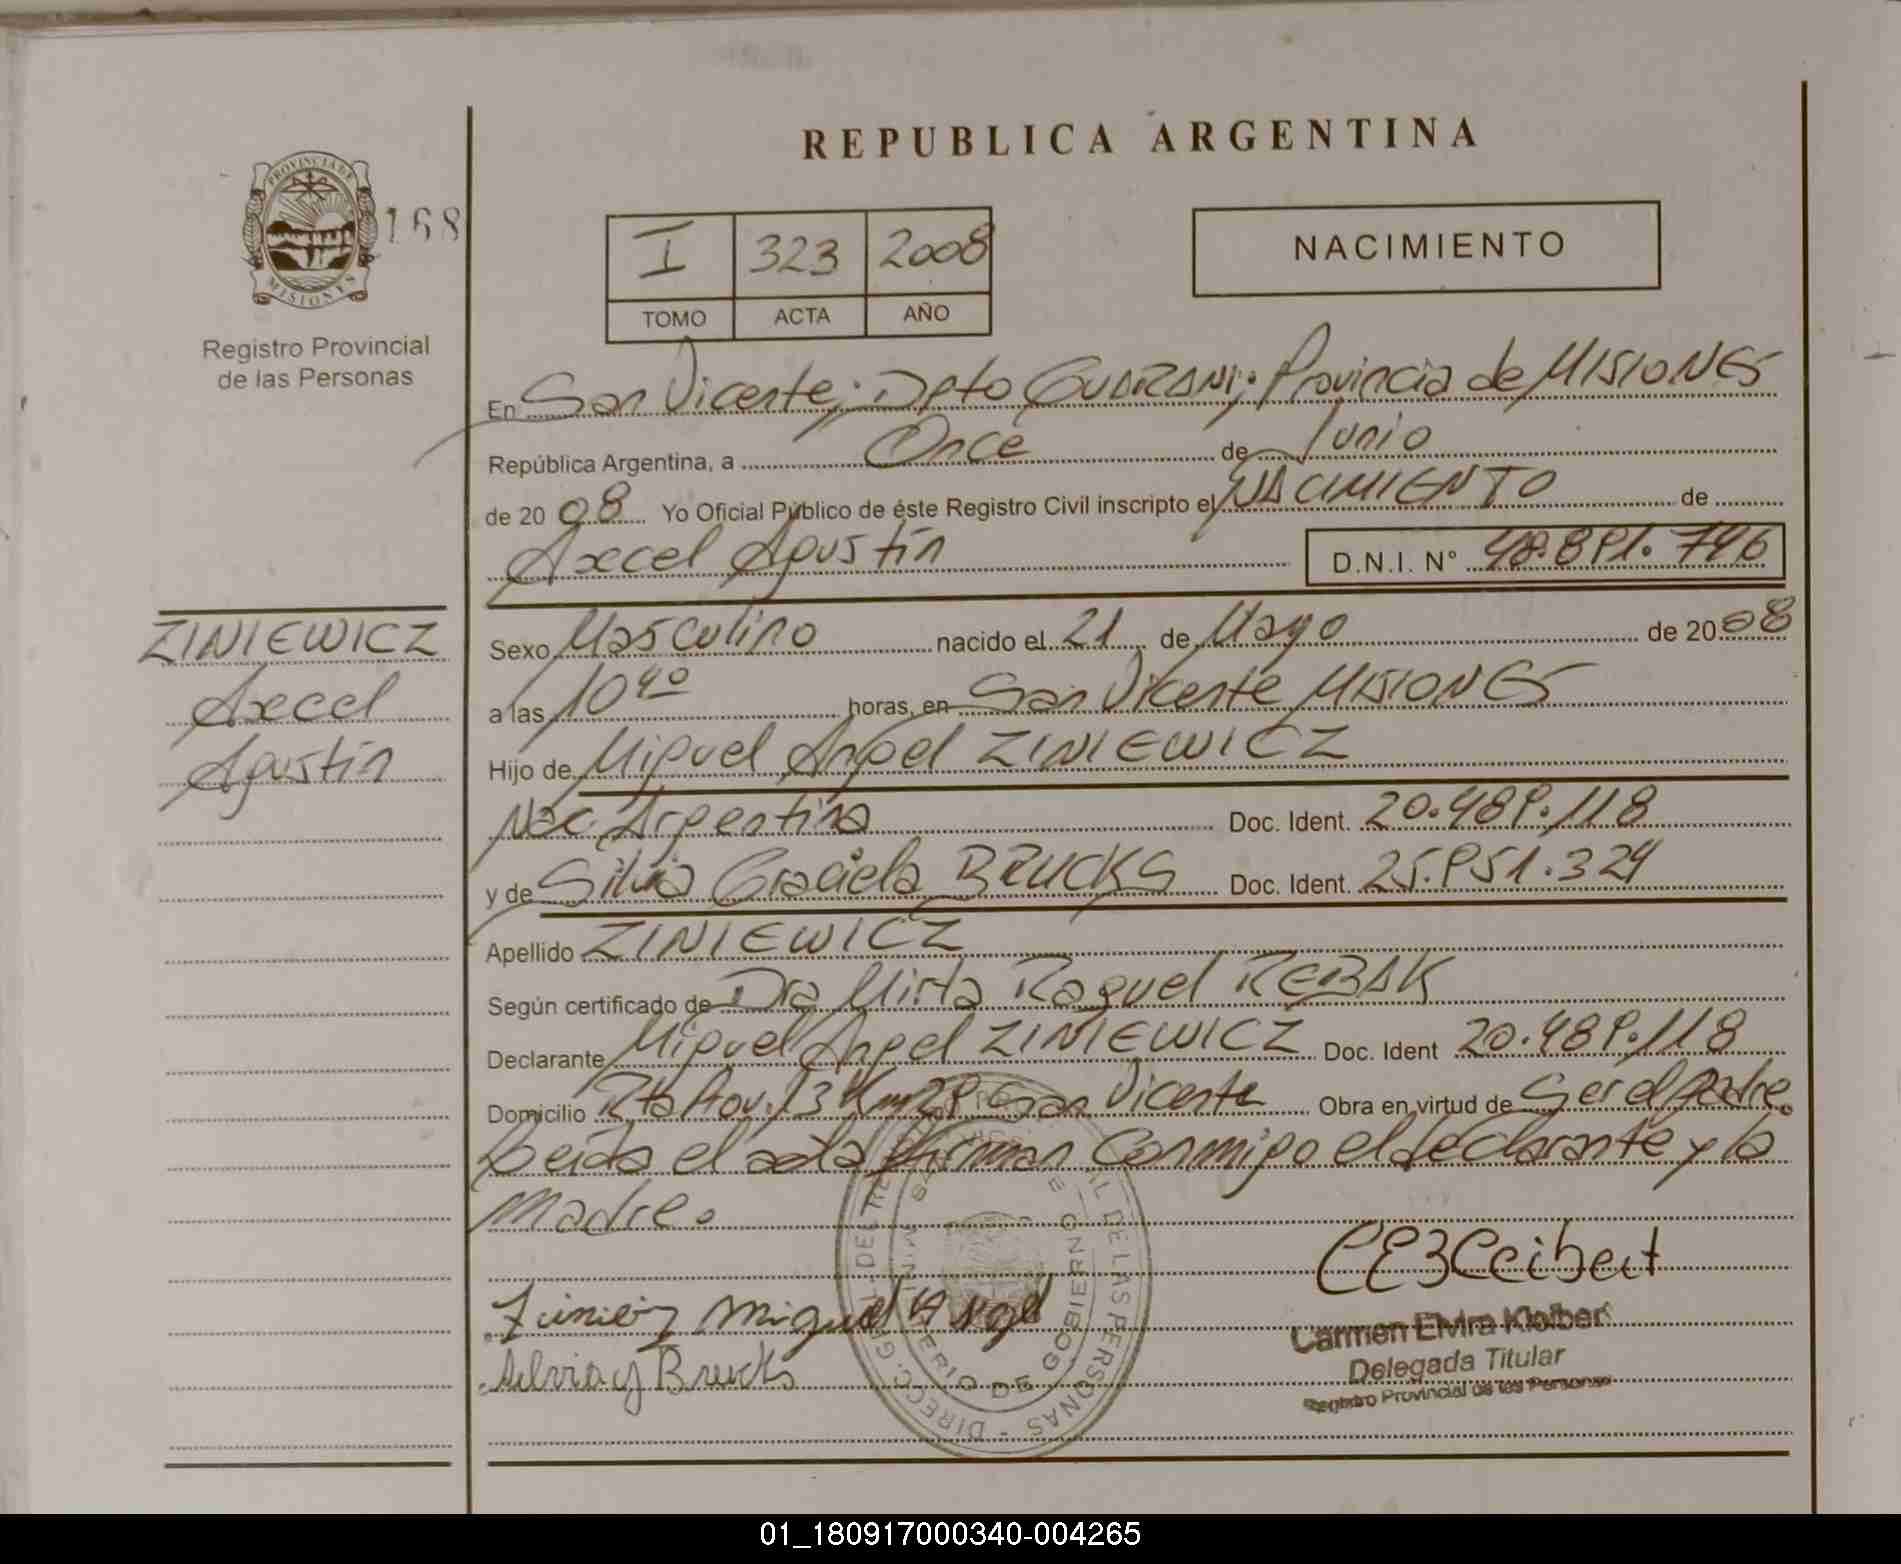 REPUBLICA ARGENTINA
PROVINCIA DE
MISIONES
168
Registro Provincial
de las Personas
I 323 2008
TOMO ACTA AÑO
NACIMIENTO
En San Vicente; Dpto GUARANI; Provincia de MISIONES
República Argentina, a Once de Junio
de 2008 Yo Oficial Público de éste Registro Civil inscripto el NACIMIENTO de
Axcel Agustín D.N.I. Nº 48.891.746
ZINIEWICZ
Axcel
Agustín
Sexo Masculino nacido el 21 de Mayo de 2008
a las 10 40 horas, en San Vicente MISIONES
Hijo de Miguel Angel ZINIEWICZ
Nac. Argentina Doc. Ident. 20.489.118
y de Silvia Graciela BRUCKS Doc. Ident. 25.951.324
Apellido ZINIEWICZ
Según certificado de Dra Mirta Raquel REBAK
Declarante Miguel Angel ZINIEWICZ Doc. Ident 20.489.118
Domicilio Rta Prov. 13 Km 29 San Vicente Obra en virtud de Ser el padre.
Leída el acta firman Conmigo el declarante y la
Madre.
Miguel Angel
Silvia G Brucks
Carmen Elvira Kleiber
Delegada Titular
Registro Provincial de las Personas
MINISTERIO DE GOBIERNO
DE LAS PERSONAS
01_180917000340-004265